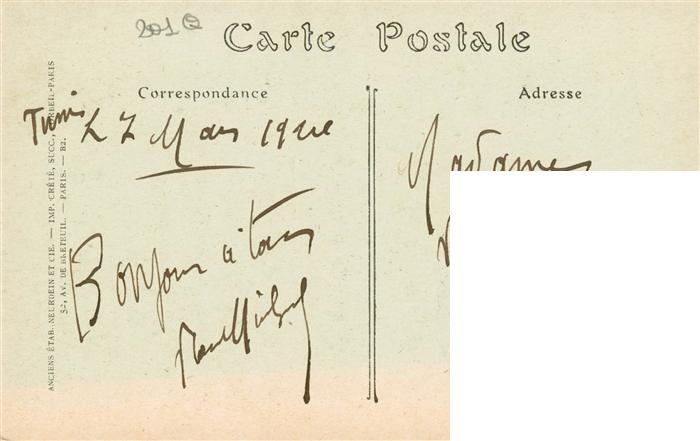 201
Carte Postale
Correspondance
Adresse
ANCIENS ÉTAB. NEURDEIN ET CIE. — IMP. CRÉTÉ, SUCC., CORBEIL-PARIS
52, AV. DE BRETEUIL. — PARIS. — B2.
Tunis 27 Mars
Bonjour à tous
Madame